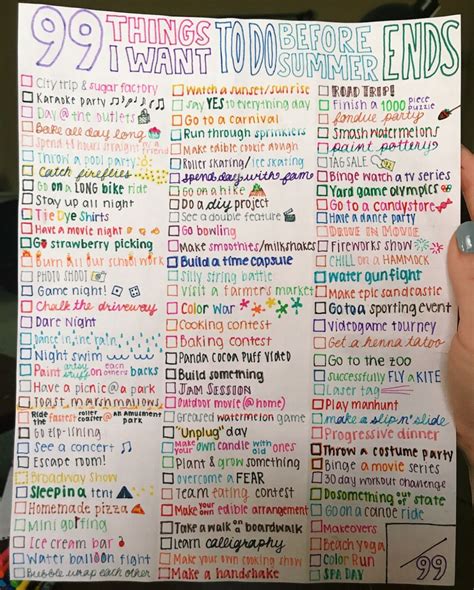 99 THINGS I WANT TO DO BEFORE SUMMER ENDS
City trip & sugar factory
Karaoke party
Day @ the outlets
Bake all day long
Spend 48 hours straight w/ a friend
Throw a pool party
Catch fireflies
Go on a LONG bike ride
Stay up all night
Tie Dye Shirts
Have a movie night
Go strawberry picking
Burn all our school work
PHOTO SHOOT
Game night!
Chalk the driveway
Dare Night
Dance in the rain
Night swim
Paint stuff on each others backs
Have a picnic @ a park
Toast marshmallows
Ride the fastest roller coaster @ an amusement park
Go zip-lining
See a concert
Escape room!
Broadway Show
Sleep in a tent
Homemade pizza
Mini golfing
Ice cream bar
Water balloon fight
Bubble wrap each other
Watch a sunset/sunrise
Say YES to everything day
Go to a carnival
Run through sprinklers
Make edible cookie dough
Roller skating/ice skating
Spend day with fam
Go on a hike
Do a diy project
See a double feature
Go bowling
Make smoothies/milkshakes
Build a time capsule
Silly string battle
Visit a farmers market
Color War
Cooking contest
Baking contest
Panda cocoa Puff Video
Build something
JAM SESSION
Outdoor movie (@ home)
Greased watermelon game
"Unplug" day
Make your own candle with old ones
Plant & grow something
overcome a FEAR
Team eating contest
Make your own edible arrangement
Take a walk on a boardwalk
learn calligraphy
Make your own cooking show
Make a handshake
ROAD TRIP!
Finish a 1000 piece puzzle
fondue party
Smash watermelons
paint pottery
TAG SALE
Binge watch a tv series
Yard game olympics
Go to a candystore
Have a dance party
DRIVE IN MOVIE
Fireworks show
CHILL on a HAMMOCK
Water gun fight
Make epic sandcastle
Go to a sporting event
Videogame tourney
Get a henna tatoo
Go to the zoo
successfully FLY a KITE
Laser tag
Play manhunt
make a slip n' slide
Progressive dinner
Throw a costume party
Binge a movie series
30 day workout challenge
Do something "out" of state
Go on a canoe ride
Makeovers
Beach Yoga
Color Run
SPA DAY
/99